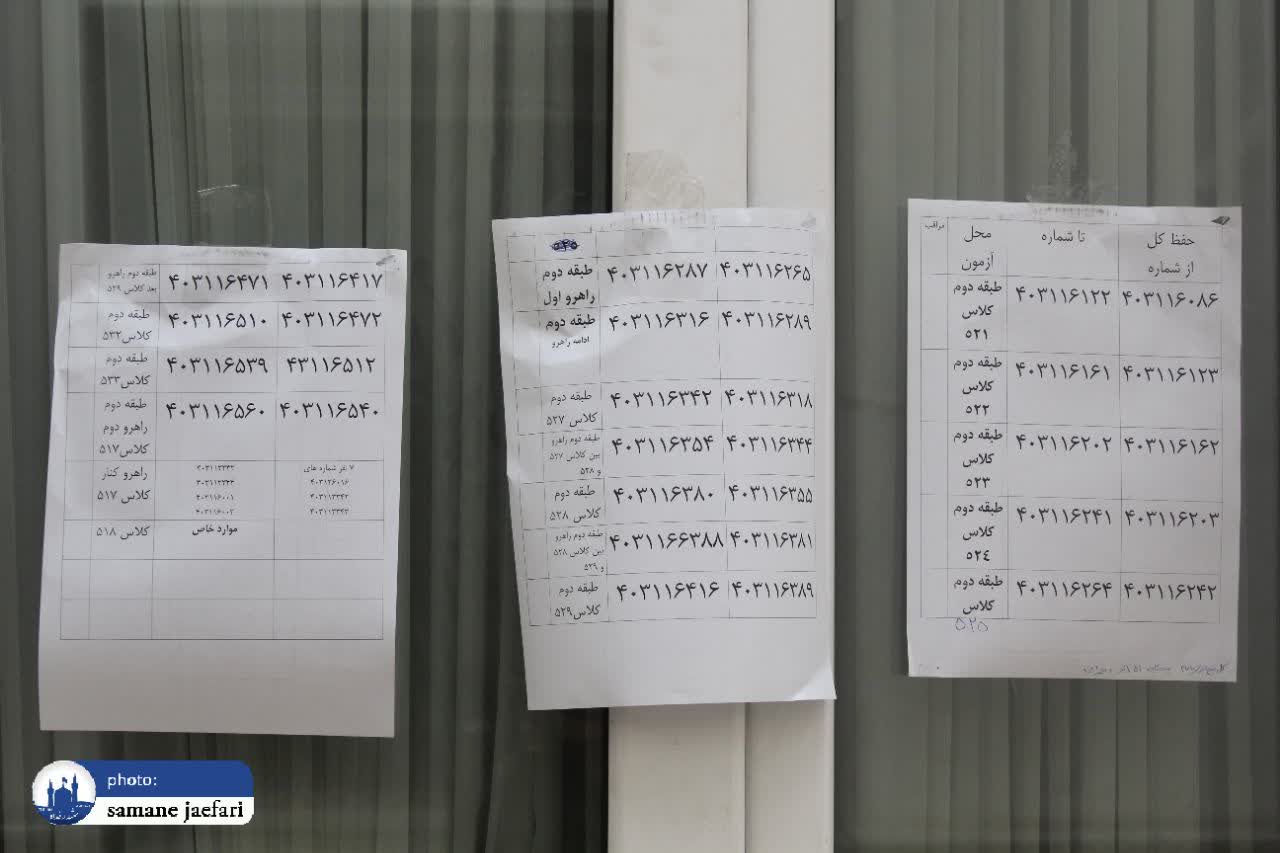 حفظ کل از شماره
تا شماره
محل آزمون
مراقب
۴۰۳۱۱۶۰۸۶ ۴۰۳۱۱۶۱۲۲ طبقه دوم کلاس ۵۲۱
۴۰۳۱۱۶۱۲۳ ۴۰۳۱۱۶۱۶۱ طبقه دوم کلاس ۵۲۲
۴۰۳۱۱۶۱۶۲ ۴۰۳۱۱۶۲۰۲ طبقه دوم کلاس ۵۲۳
۴۰۳۱۱۶۲۰۳ ۴۰۳۱۱۶۲۴۱ طبقه دوم کلاس ۵۲٤
۴۰۳۱۱۶۲۴۲ ۴۰۳۱۱۶۲۶۴ طبقه دوم کلاس ۵۲۵
۴۰۳۱۱۶۲۶۵ ۴۰۳۱۱۶۲۸۷ طبقه دوم راهرو اول
۴۰۳۱۱۶۲۸۹ ۴۰۳۱۱۶۳۱۶ طبقه دوم ادامه راهرو
۴۰۳۱۱۶۳۱۸ ۴۰۳۱۱۶۳۴۲ طبقه دوم کلاس ۵۲۷
۴۰۳۱۱۶۳۴۴ ۴۰۳۱۱۶۳۵۴ طبقه دوم راهرو بین کلاس ۵۲۷ و ۵۲۸
۴۰۳۱۱۶۳۵۵ ۴۰۳۱۱۶۳۸۰ طبقه دوم کلاس ۵۲۸
۴۰۳۱۱۶۳۸۱ ۴۰۳۱۱۶۶۳۸۸ طبقه دوم راهرو بین کلاس ۵۲۸ و ۵۲۹
۴۰۳۱۱۶۳۸۹ ۴۰۳۱۱۶۴۱۶ طبقه دوم کلاس ۵۲۹
۴۰۳۱۱۶۴۱۷ ۴۰۳۱۱۶۴۷۱ طبقه دوم راهرو بعد کلاس ۵۲۹
۴۰۳۱۱۶۴۷۲ ۴۰۳۱۱۶۵۱۰ طبقه دوم کلاس ۵۳۲
۴۳۱۱۶۵۱۲ ۴۰۳۱۱۶۵۳۹ طبقه دوم کلاس ۵۳۳
۴۰۳۱۱۶۵۴۰ ۴۰۳۱۱۶۵۶۰ طبقه دوم راهرو دوم کلاس ۵۱۷
۷ نفر شماره های
راهرو کنار کلاس ۵۱۷
موارد خاص کلاس ۵۱۸
photo:
samane jaefari